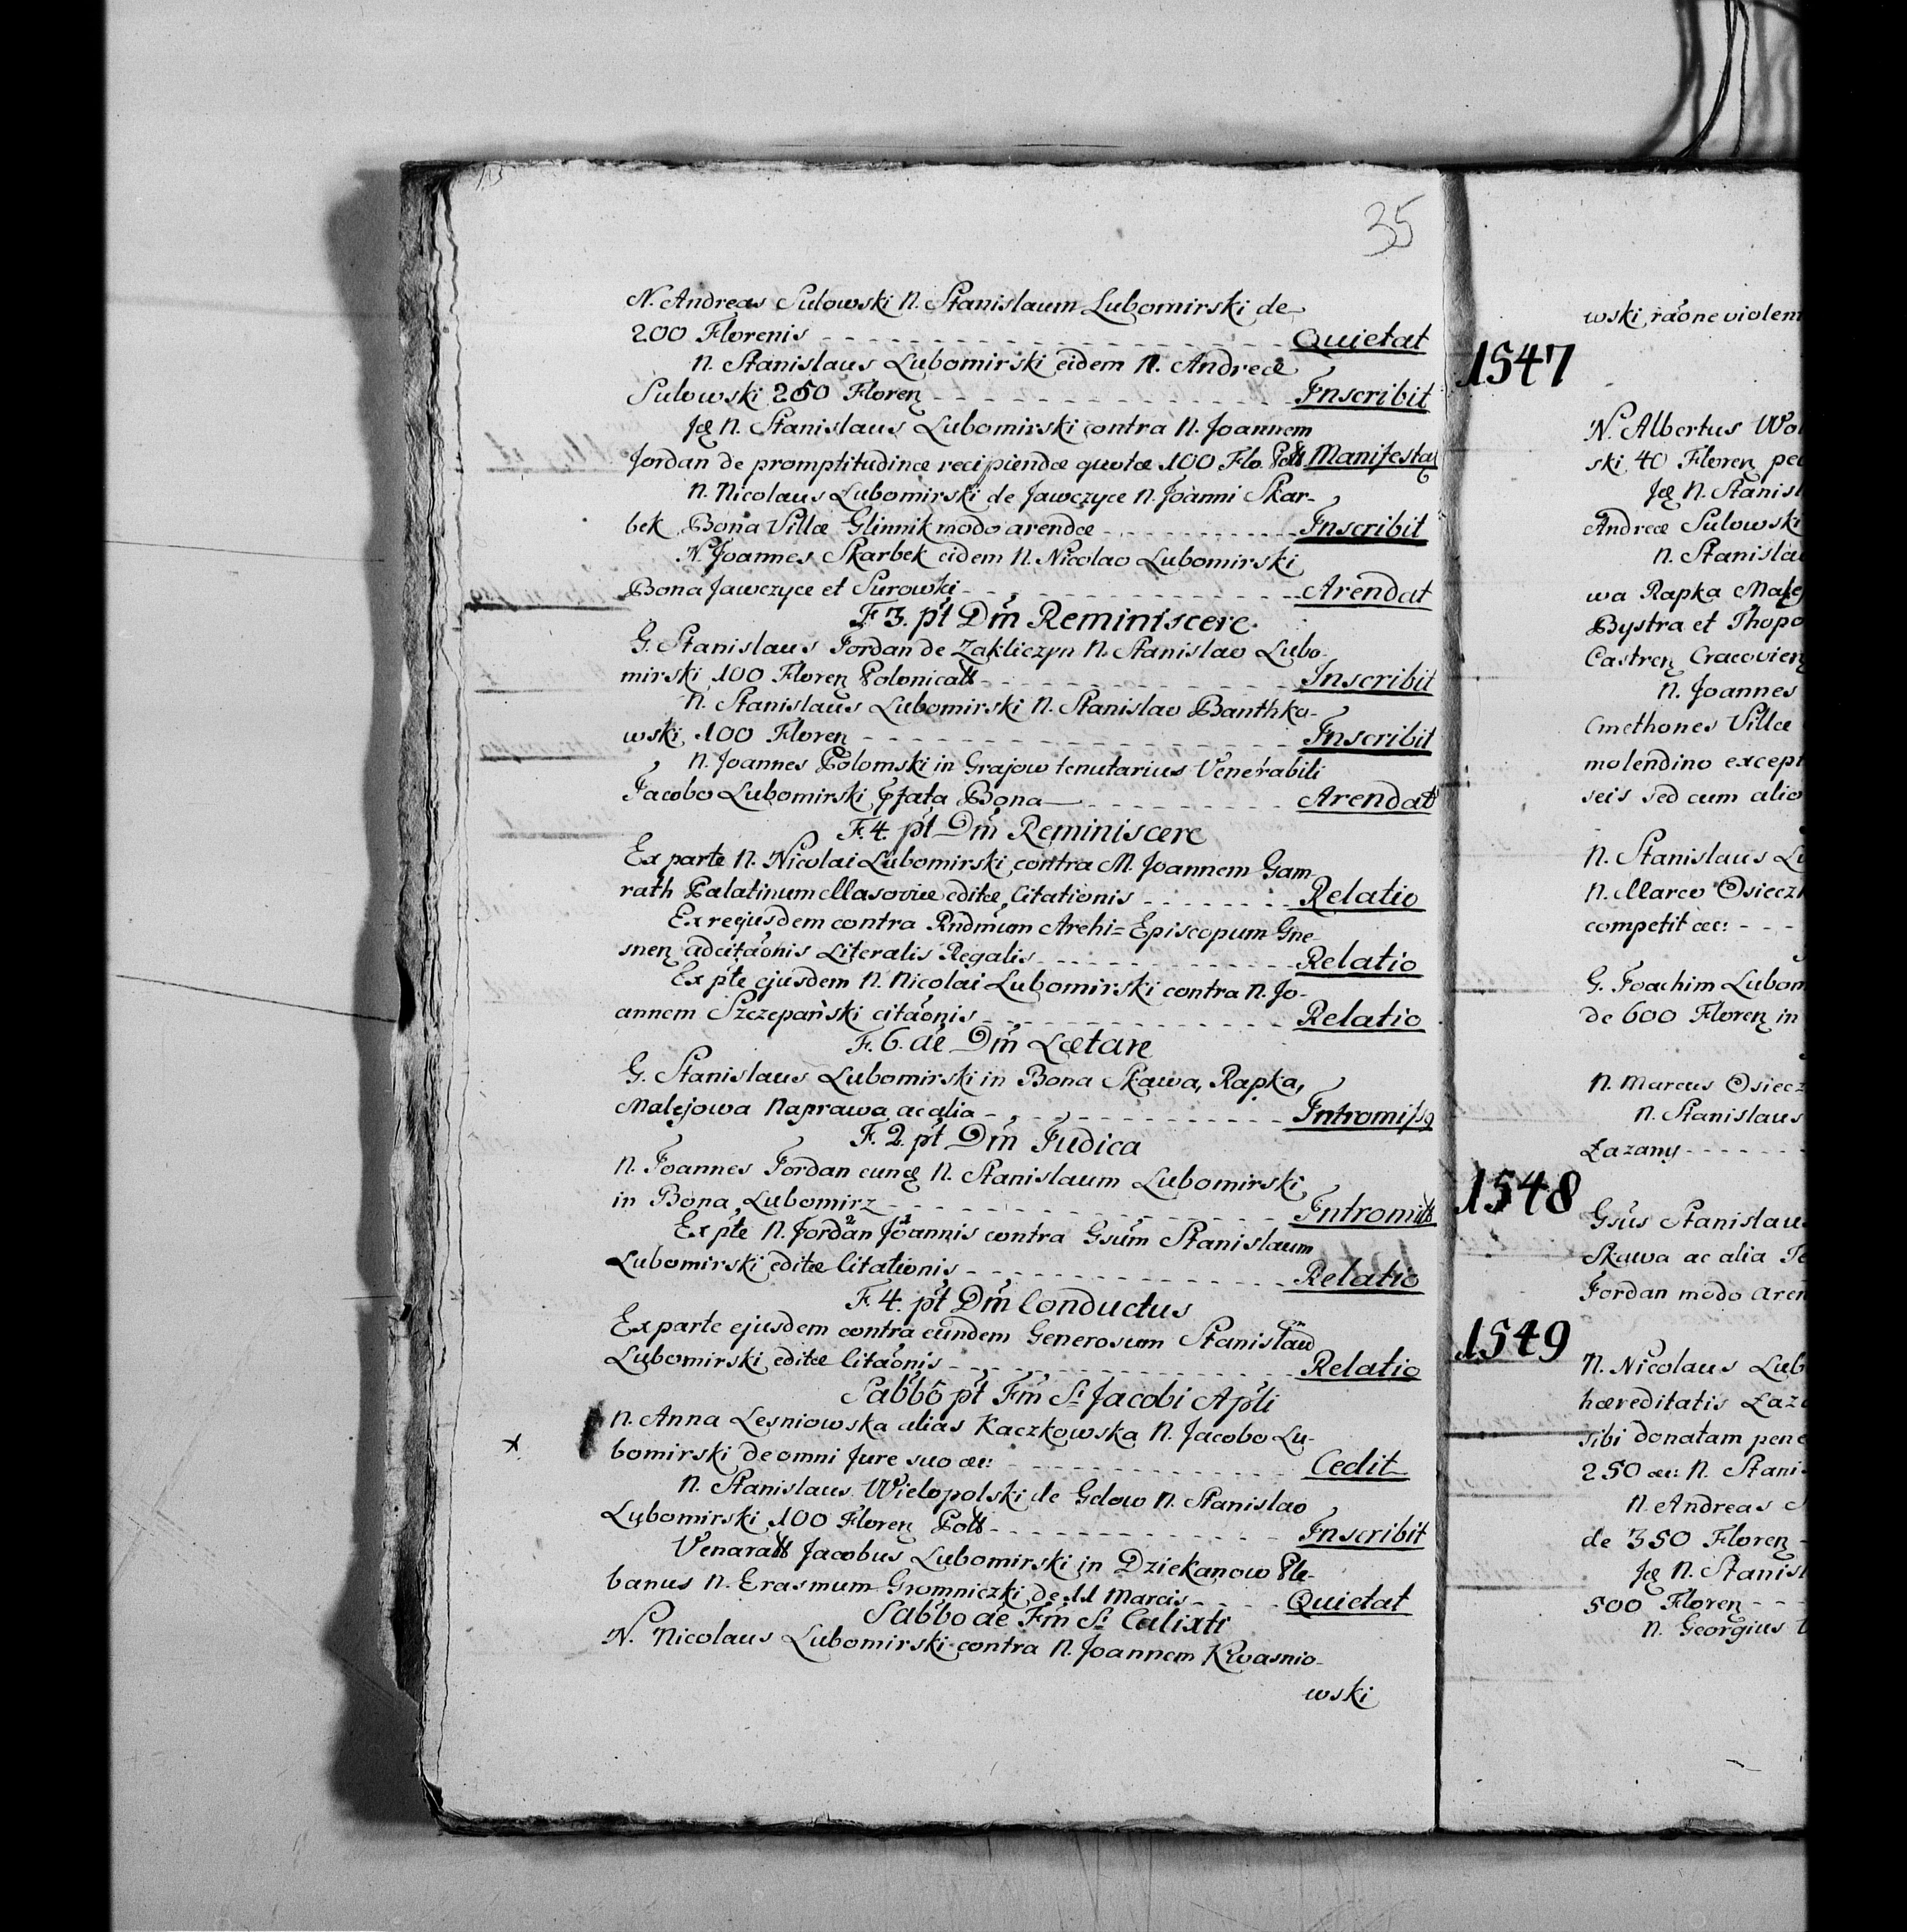 35
N. Andreas Sulowski N. Stanislaum Lubomirski de
200 Florenis Quietat
N. Stanislaus Lubomirski eidem N. Andreæ
Sulowski 250 Floren Inscribit
Jd N. Stanislaus Lubomirski contra N. Joannem
Jordan de promptitudine recipiendæ quotæ 100 Flo. Manifesta
N. Nicolaus Lubomirski de Jawczyce N. Joanni Skar-
bek Bona Villæ Glinnik modo arendæ Inscribit
N. Joannes Skarbek eidem N. Nicolao Lubomirski
Bona Jawczyce et Surowki Arendat
F. 3. pt Dm Reminiscere
G. Stanislaus Jordan de Zakliczyn N. Stanislao Lubo-
mirski 100 Floren Polonical Inscribit
N. Stanislaus Lubomirski N. Stanislao Banthko-
wski 100 Floren Inscribit
N. Joannes Polomski in Grajow tenutarius Venerabili
Jacobo Lubomirski pfata Bona Arendat
F. 4. pt Dm Reminiscere
Ex parte N. Nicolai Lubomirski contra M. Joannem Gam-
rath Palatinum Masoviæ editæ Citationis Relatio
Ex re ejusdem contra Rndmum Archi=Episcopum Gne-
snen adcitaonis Literalis Regalis Relatio
Ex pte ejusdem N. Nicolai Lubomirski contra N. Jo-
annem Szczepański citaonis Relatio
F. 6. ae Dm Lætare
G. Stanislaus Lubomirski in Bona Skawa, Rapka,
Malejowa Naprawa ac alia Intromiss9
F. 2. pt Dm Judica
N. Joannes Jordan eund N. Stanislaum Lubomirski
in Bona Lubomirz Intromitt
Ex pte N. Jordan 2 Joannis 1 contra Gsum Stanislaum
Lubomirski editæ Citationis Relatio
F. 4. pt Dm Conductus
Ex parte ejusdem contra eundem Generosum Stanislau
Lubomirski editæ Citaonis Relatio
Sabbo pt Fm S. Jacobi Apli
x N. Anna Lesniowska alias Kaczkowska N. Jacobo Lu-
bomirski de omni Jure suo æc: Cedit
N. Stanislaus Wielopolski de Gdow N. Stanislao
Lubomirski 100 Floren Poll Inscribit
Venarall Jacobus Lubomirski in Dziekanow Ple-
banus N. Erasmum Gromniczki de 11 Marcis Quietat
Sabbo ae Fm S. Calixti
N. Nicolaus Lubomirski contra N. Joannem Kwasnio-
wski
wski raone violen
1547
N. Albertus
ski 40 Floren
Jd N. Stanisl
Andreæ Sulowski
N. Stanisla
wa Rapka Malej
Bystra et Thopo
Castren Cracovien
N. Joannes
Cmethones Villæ
molendino except
seis sed cum alio
N. Stanislaus Lu
N. Marco Osieczk
competit æc:
G. Joachim Lubom
de 600 Floren in
N. Marcus Osiecz
N. Stanislaus
Łazany
1548
Gsus Stanislau
Skawa ac alia
Jordan modo aren
1549
N. Nicolaus Lub
hæreditatis Łaza
sibi donatam pene
250 æc: N. Stani
N. Andreas S
de 350 Floren
Jd N. Stanisl
500 Floren
N. Georgius